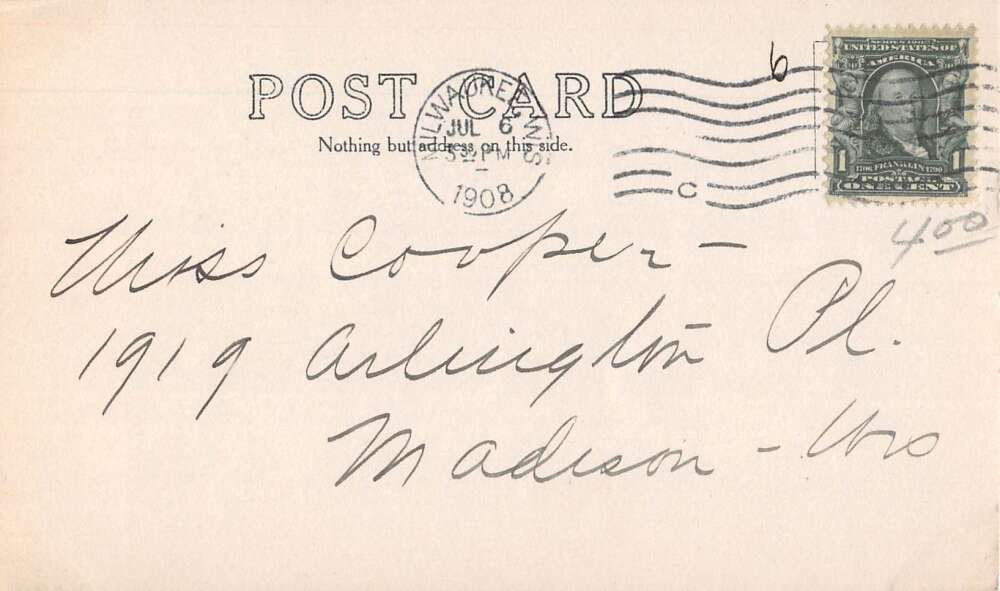 POST CARD
Nothing but address on this side.
MILWAUKEE, WIS.
JUL 6
3 30 PM
1908
C
6
SERIES 1902
UNITED STATES OF
AMERICA
1706 FRANKLIN 1790
POSTAGE
1 1
ONE CENT
4.00
Miss Cooper -
1919 Arlington Pl.
Madison - Wis